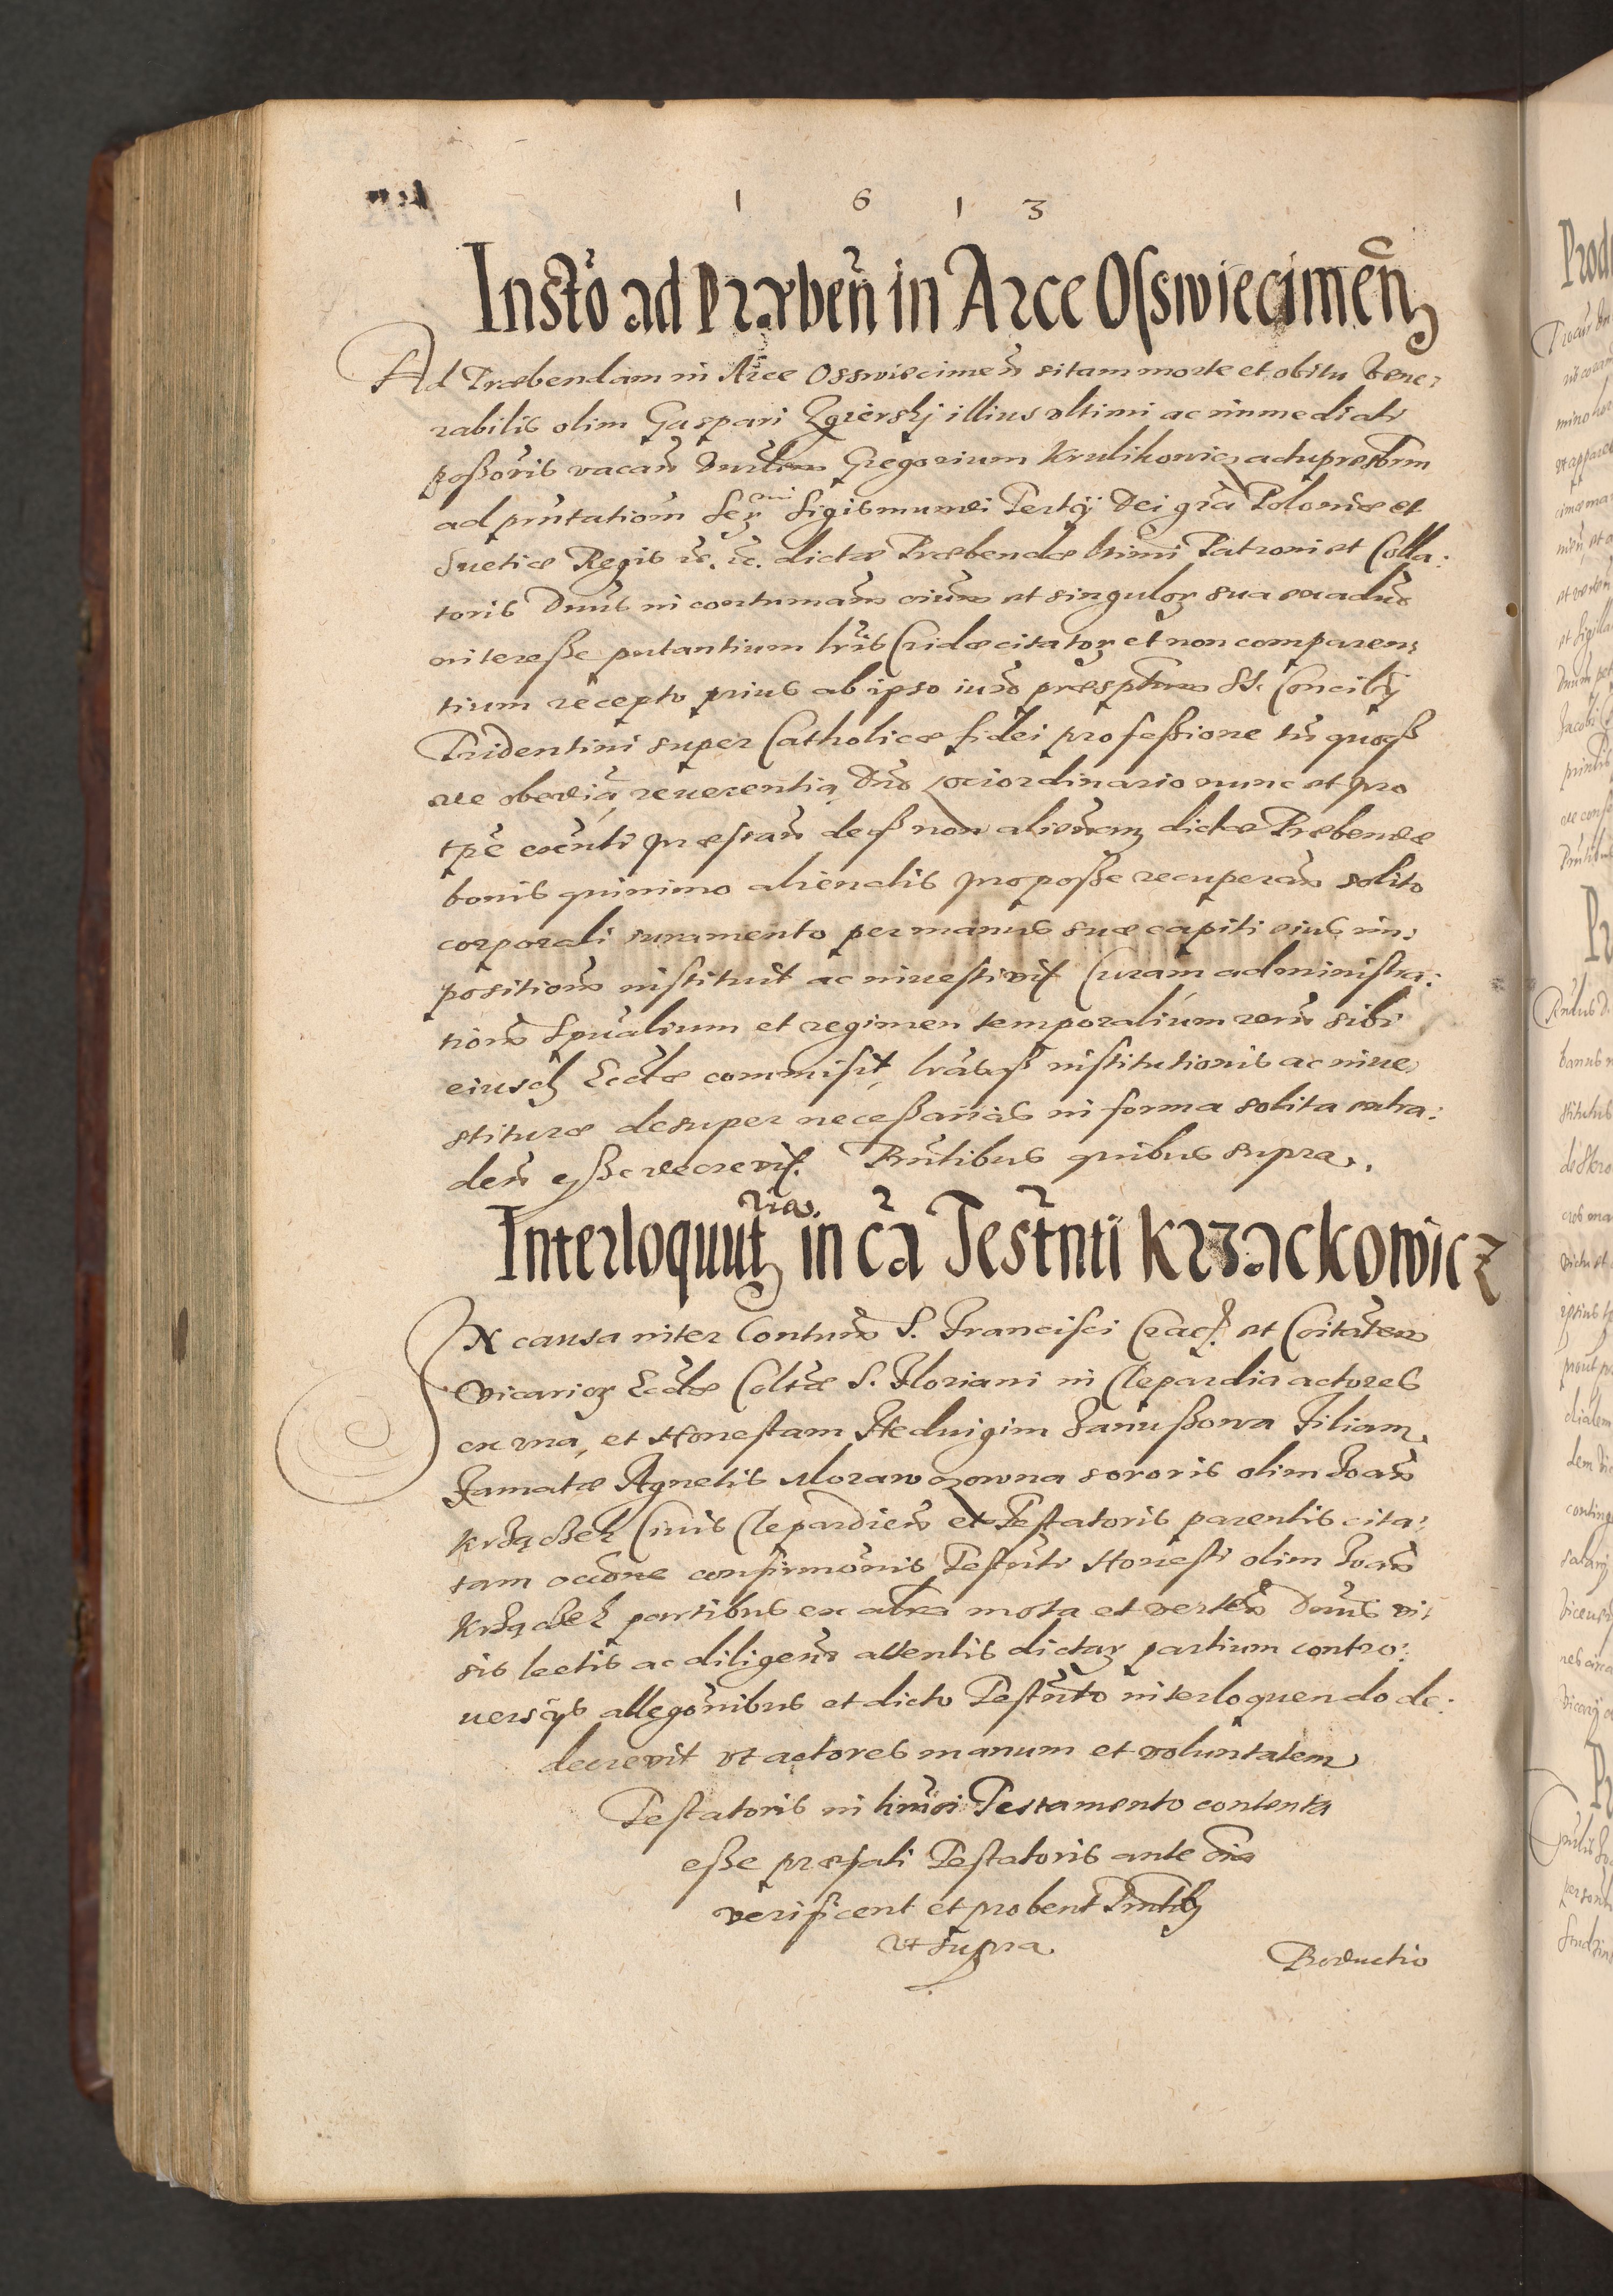 1 6 1 3
Instõ ad Præbeñ in Arce Osswiecimeñ
Ad Præbendam in Arce Osswiecimeñ sitam morte et obitu vene:
rabilis olim Gaspari Zgierskj illius vltimi ac immediati
poßoris vacañ Gregorium Krulikowicz actu præsbrm
ad pñtationẽ Serᵐⁱ Sigismundi Tertij Dei grã Poloniæ et
Suetiæ Regis etc. etc. dictæ Præbendæ Patroni et Colla:
toris Dnus in contumatiã oium et singulorʒ sua
interesse putantium lris Cridæ citatorʒ et non comparen:
tium recepto prius ab ipso iurõ præsptum St. Concilij
Tridentini super Catholicæ fidei professione tum quoqʒ
de obediã, reuerentia Dño Loci ordinario nunc et pro
tpẽ præstañ deqʒ non dictæ Præbendæ
bonis quinimo alienatis pro posse recuperañ solito
corporali iuramento per manus suæ capiti eius im:
positionẽ instituit ac inuestivit Curam administra:
tionẽ Spũalium et regimen temporalium rerũ sibi
eiusdʒ Ecclæ commisit, lrasqʒ institutionis ac inue
stituræ desuper necessarias in forma solita extra:
deñ esse decrevit. Pñtibus quibus supra.
Interloquutʒria. in cã Testm̃ti Krzackowicz
IN causa inter Contum̃ S. Francisci Cracʒ. et Cõitatem
Vicariorʒ Ecclæ Coltæ S. Floriani in Clepardia actores
ex vna, et Honestam Heduigim Janußowa Filiam
Famatæ Agnetis Morawczowna sororis olim Joañ
Krzączek Ciuis Clepardieñ et Testatoris parentis cita:
tam occõne confirmõnis Testm̃ti Honesti olim Joañ
Krzączek partibus ex altera mota et verteñ Dnus vi:
sis lectis ac diligenr̃ attentis dictarʒ partium contro:
uersijs allegõnibus et dicto Testm̃to interloquendo de:
decrevit vt actores manum et voluntatem
Testatoris in hm̃oi Testamento contenta
esse præfati Testatoris ante oia
verificent et probent Pñtibʒ
vt supra
Productio